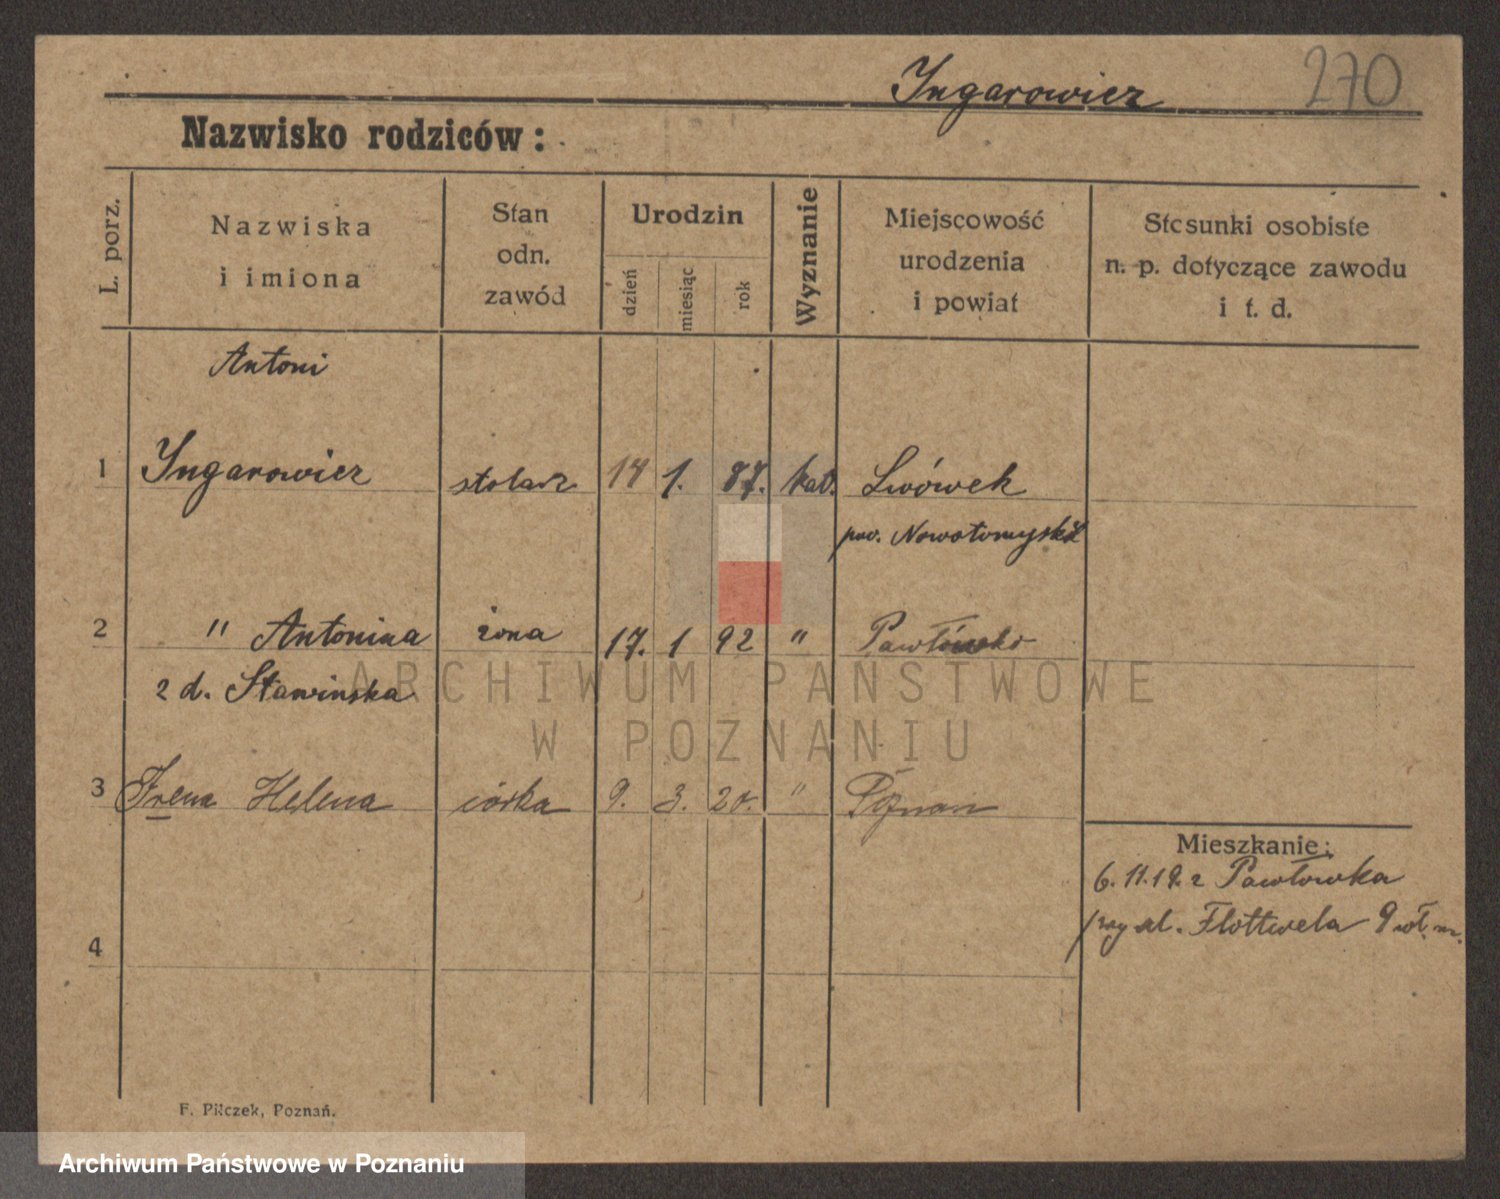 Yngarowicz
270
Nazwisko rodziców:
L. porz.
Nazwiska
i imiona
Stan
odn.
zawód
Urodzin
dzień
miesiąc
rok
Wyznanie
Miejscowość
urodzenia
i powiat
Stosunki osobiste
n. p. dotyczące zawodu
i t. d.
Antoni
1 Yngarowicz stolarz 14 1. 87. kat. Lwówek
pow. Nowotomysk
2 " Antonina żona 17. 1 92 " Pawłówko
z d. Stawinska
3 Irena Helena córka 9. 3. 20. " Poznan
Mieszkanie:
6.11.19. z Pawłowka
przy ul. Flottwela 9 wł. m.
4
F. Pilczek, Poznań.
ARCHIWUM PAŃSTWOWE
W POZNANIU
Archiwum Państwowe w Poznaniu